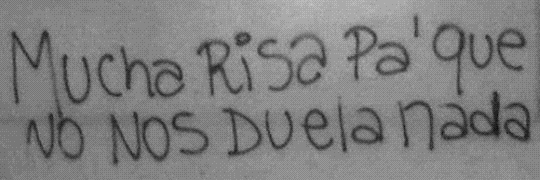 Mucha Risa Pa' que
NO NOS Duela nada